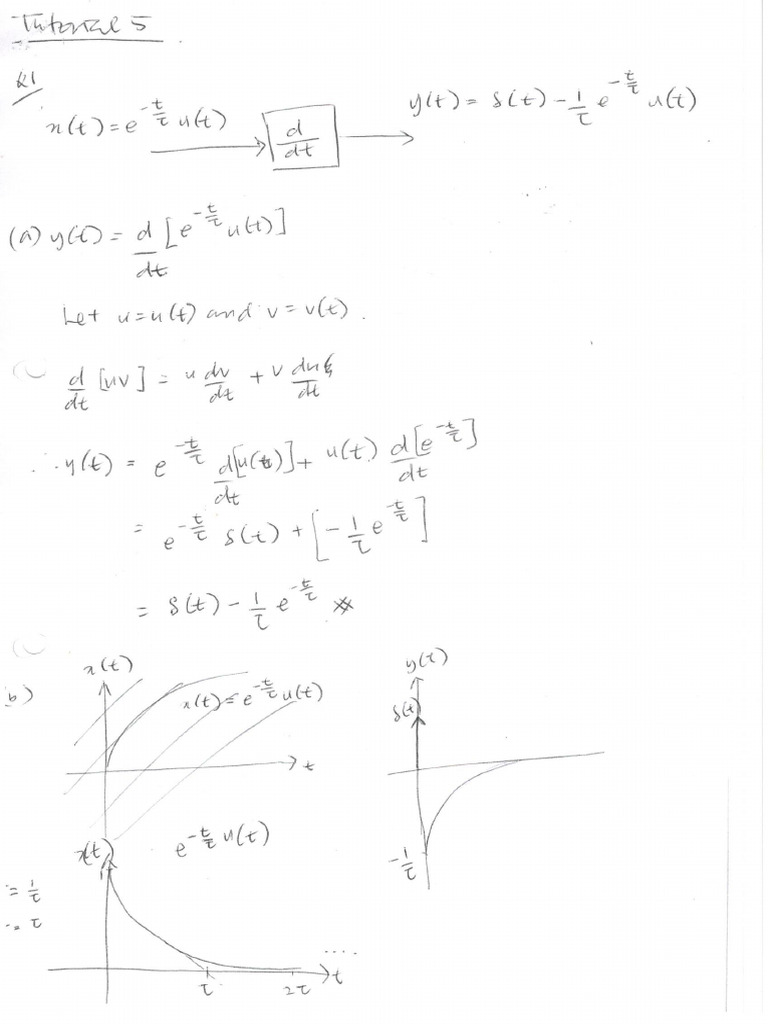 Tutorial 5
Q1
x(t) = e^{-t/τ} u(t) → [d/dt] → y(t) = δ(t) - 1/τ e^{-t/τ} u(t)
(a) y(t) = d/dt [e^{-t/τ} u(t)]
Let u = u(t) and v = v(t).
d/dt [uv] = u dv/dt + v du/dt
∴ y(t) = e^{-t/τ} d[u(t)]/dt + u(t) d[e^{-t/τ}]/dt
= e^{-t/τ} δ(t) + [-1/τ e^{-t/τ}]
= δ(t) - 1/τ e^{-t/τ} ※
b)
x(t)
x(t) = e^{-t/τ} u(t)
t
y(t)
δ(t)
-1/τ
x(t)
e^{-t/τ} u(t)
1
= 1/τ
= τ
τ
2τ
....
t